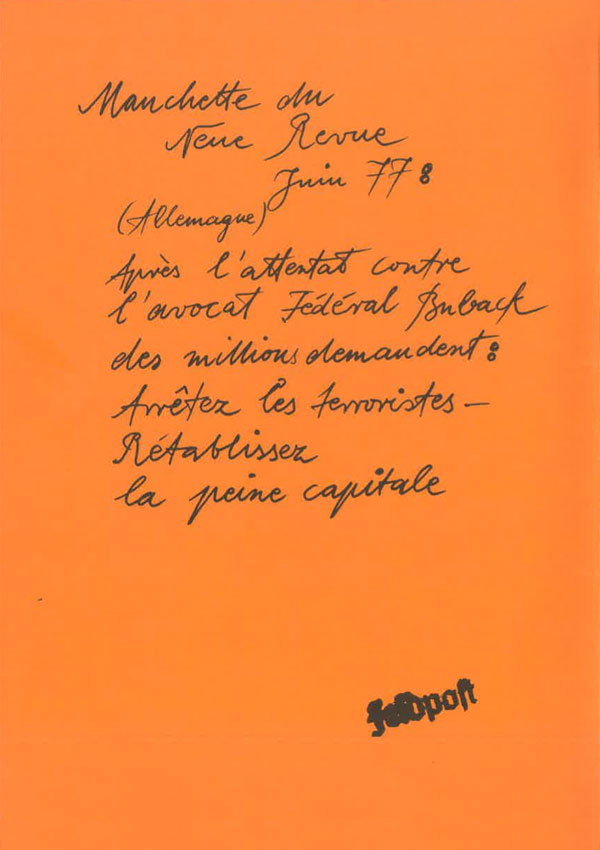 Manchette du
Neue Revue
Juin 77:
(Allemagne)
Après l'attentat contre
l'avocat Fédéral Buback
des millions demandent:
Arrêtez les terroristes –
Rétablissez
la peine capitale
Feldpost